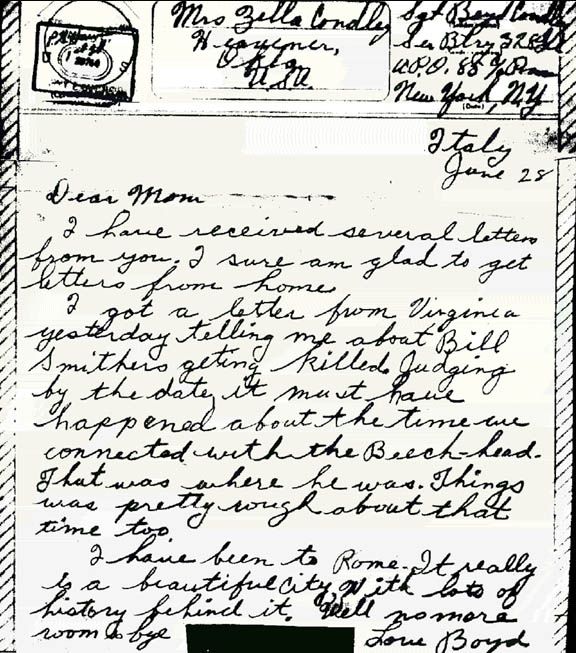 Mrs Zella Condley
Okla
U.S.A.
Sgt Boyd Condley
Ser Btry 328
A.P.O. 88
New York, N.Y.
(Date)
Italy
June 28
Dear Mom
I have received several letters
from you. I sure am glad to get
letters from home
I got a letter from Virginia
yesterday telling me about Bill
Smithers geting killed. Judging
by the date, it must have
happened about the time we
connected with the Beech-head.
That was where he was. Things
was pretty rough about that
time too
I have been to Rome. It really
is a beautiful city, With lots of
history behind it. Well no more
room so bye
Love Boyd